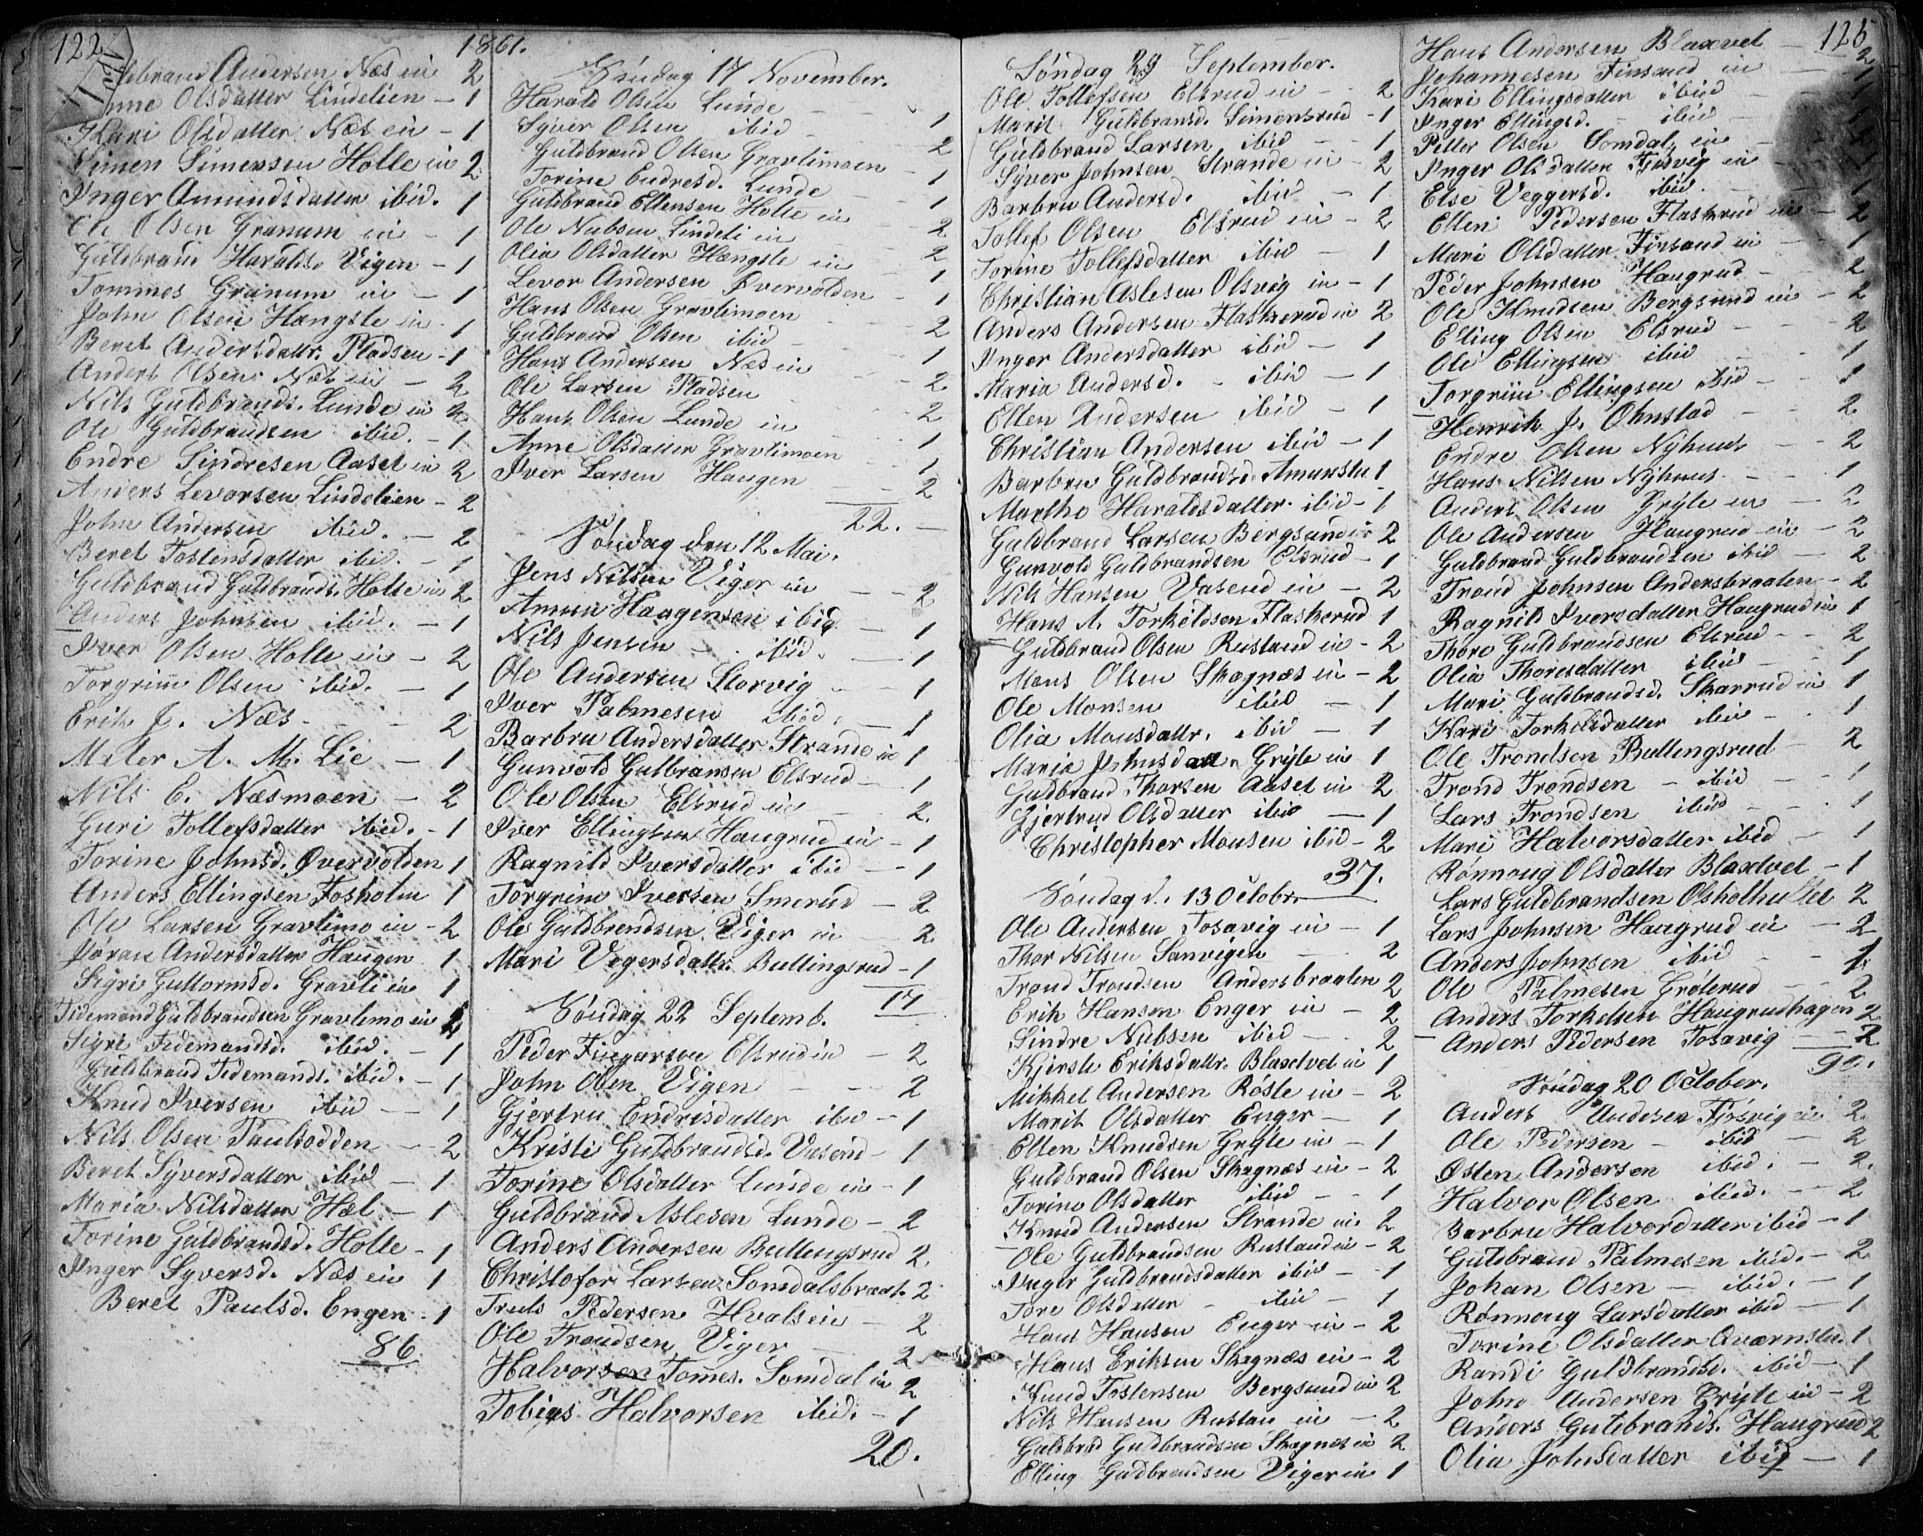 122
1861.
Andersen Næs in 2
Anne Olsdatter Lindelien - 1
Kari Olsdatter Næs ein - 1
Simen Simensen Holte in 2
Inger Amundsdatter ibid. 1
Ole Olsen Granum in - 1
Guldbrand Haralds. Vigen - 1
Tommes Granum in - 1
John Olsen Hængsle in - 1
Beret Andersdattr. Pladsen - 1
Anders Olsen Næs in - 2
Nils Guldbrands. Lunde in 2
Ole Guldbrandsen ibid. - 1
Endre Sindresen Aaset in 2
Anders Levorsen Lindelien - 2
John Andersen ibid. - 2
Beret Tostensdatter ibd. - 1
Guldbrand Guldbrands. Holte in 2
Anders Johnsen ibid. - 1
Iver Olsen Holte in - 2
Torgrim Olsen ibid. - 1
Erik J. Næs - 2
Mater A. M. Lie - 1
Nils E. Næsmoen - 2
Guri Tollefsdatter ibid. - 1
Torine Johnsd. Øvervolden 1
Anders Ellingsen Fosholm 1
Ole Larsen Gravlimo in - 2
Jøran Andersdatter Haugen 1
Sigri Guttormsd. Gravli in 1
Tidemand Guldbrandsen Gravlimo in 2
Sigri Tidemandsd. ibid. - 1
Guldbrand Tidemands. ibid. - 1
Knud Iversen ibid - 1
Nils Olsen Paulsodden - 2
Beret Syversdatter ibid - 1
Maria Nilsdatter Hæl - 1
Torine Guldbrandsd. Holte - 1
Inger Syversd. Næs ein 1
Beret Paulsd. Engen - 1
86
Søndag 17 November.
Harald Olsen Lunde
Syver Olsen ibid - 1
Guldbrand Olsen Gravlimoen 2
Torine Endresd. Lunde - 1
Guldbrand Ellensen Holte in - 1
Ole Nubsen Lindeli in 2
Olia Olsdatter Hængsle in 2
Levor Andersen Øvervolden - 1
Hans Olsen Gravlimoen - 1
Guldbrand Olsen ibid - 2
Hans Andersen Næs in 1
Ole Larsen Pladsen - 2
Hans Olsen Lunde in - 2
Anne Olsdatter Gravlimoen - 1
Iver Larsen Haugen - 1
2
22. -
Søndag den 12 Mai.
Jens Nilsen Viger in - 2
Amun Haagensen ibid - 1
Nils Jensen - ibid. - 1
Ole Andersen Storvig - 1
Iver Palmesen ibid. - 1
Barbru Andersdatter Strande in 1
Gunvold Gulbransen Elsrud - 1
Ole Olsen Elsrud in - 2.
Iver Ellingsen Haugrud in - 1
Ragnild Iversdatter ibid - 1
Torgrim Iversen Smerud - 2
Ole Guldbrendsen Viger in - 2
Mari Vegersdattr. Bullingsrud - 1
17
Søndag 22 Septemb.
Peder Elsrud in - 2
John Olsen Vigen - 2
Gjertru Endrisdatter ibd - 1
Kristi Guldbrandsd. Vasend - 1
Torine Olsdatter Lunde in - 1
Guldbrand Aslesen Lunde - 2
Anders Andersen Bullingsrud 2.
Christofor Larsen Somdalsbraat. 2
Truls Pedersen Hvalsein - 2
Ole Trondsen Viger - 2
Halvorsen Tomes. Somdal in 2
Tobias Halvorsen ibid. - 1
20.
Søndag 29 September.
Ole Tollefsen Elsrud in - 2
Marit Guldbransd. Simensrud - 1
Guldbrand Larsen ibid - 1
Syver Johnsen Strande in - 2
Barbru Andersd. ibid - 1
Tollef Olsen Elsrud in - 2
Torine Tollefsdatter ibid - 1
Christian Aslesen Olsvig in - 1
Anders Andersen Flaskerud in 2
Inger Andersdatter ibid - 1
Maria Andersd. - ibid - 1
Ellen Andersen ibid - 1
Christian Andersen ibid - 1
Barbru Guldbrandsd. 1
Marthe Haraldsdatter ibid - 1
Guldbrand Larsen Bergsund in 2
Gunvold Guldbrandsen Elsrud - 1
Nils Hansen Vasend in - 2
Hans A. Torkildsen Flaskerud 1
Guldbrand Olsen Rustand in - 2
Mons Olsen Skagnæs in - 2
Ole Monsen ibid - 1
Olia Monsdattr. ibid - 1
Maria Johnsdatter Gryte in 1
Guldbrand Thorsen Aaset in 2
Gjertrud Olsdatter ibid - 1
Christopher Monsen ibid - 2
37.
Søndag d. 13 Octobr.
Ole Andersen Tosavig in - 1
Thor Nilsen Sanvigen - 2
Trond Trondsen Andersbraaten 2
Erik Hansen Enger in - 2
Sindre Nubsen ibid. - 2
Kjersti Eriksdattr. Blaxtvet in 1
Mikkel Andersen Røsle in - 2
Marit Olsdatter Enger - 1
Ellen Knudsen Gryte in - 1
Guldbrand Olsen Skagnæs in - 2
Torine Olsdatter ibid - 1
Knud Andersen Strande in 2
Ole Guldbrandsen Rustand in - 2
Inger Guldbrandsdatter ibid - 1
Tore Olsdatter - ibid - 1
Hans Hansen Enger in - 2
Hans Eriksen Skagnæs ein - 2
Knud Tostensen Bergsund in 2
Nils Hansen Rustan in - 2
Guldbrd Guldbrandsen Skagnæs in 2
Elling Guldbrandsen Viger in 1
125
Hans Andersen Blaxvet - 2
Johannesen Finsand in - 1
Kari Ellingsdatter ibid
Inger Ellingsd. - ibid
Peter Olsen Somdal in
Inger Olsdatter Fjösvig in
Else Veggersd. ibid. - 1
Ellen Pedersen Flaskrud in - 2
Mari Olsdatter Finsand in - 1
Peder Johnsen Haugrud - 2
Ole Knudsen Bergsund in - 2
Elling Olsen Elsrud - 2
Ole Ellingsen ibid - 1
Torgrim Ellingsen ibid - 1
Henrik J. Ohnstad - 2
Endre Olsen Nyhuus - 2
Hans Nilsen Nyhuus - 1
Anders Olsen Gryte in - 2
Ole Andersen Haugrud in - 2
Guldbrand Guldbrandsen ibid - 2
Trond Johnsen Andersbraaten - 2
Ragnild Iversdatter Haugrud in 1
Thore Guldbrandsen Elsrud - 2
Olia Thoresdatter ibid - 1
Mari Guldbrandsd. Skarrud in 1
Kari Torkilsdatter ibid - 1
Ole Trondsen Bullingsrud - 2
Trond Trondsen - ibid - 1
Lars Trondsen ibid - 1
Mari Halvorsdatter ibid - 1
Rønnoug Olsdatter Blaxtvet - 1
Lars Guldbrandsen 2
Lars Johnsen Haugrud in - 2
Anders Johnsen ibid - 1.
Ole Palmesen Grøterud - 2
Anders Torkelsen Haugrudhagen 2
Anders Pedersen Tosavig - 2
90.
Søndag 20 October.
Anders Andersen Fjösvig in 2
Ole Pedersen - ibid - 2
Østen Andersen ibid. - 2.
Halvor Olsen ibid. - 2
Barbru Halvordatter ibid - 1
Guldbrand Palmesen ibid. - 2
Johan Olsen - ibid. - 1
Rønnoug Larsdatter ibid - 1
Torine Olsdatter Qværnstu. 1
Randi Guldbrandsd. ibid - 1
John Andersen Gryte in - 2
Anders Guldbrands. Haugrud 2
Olia Johnsdatter ibid - 1